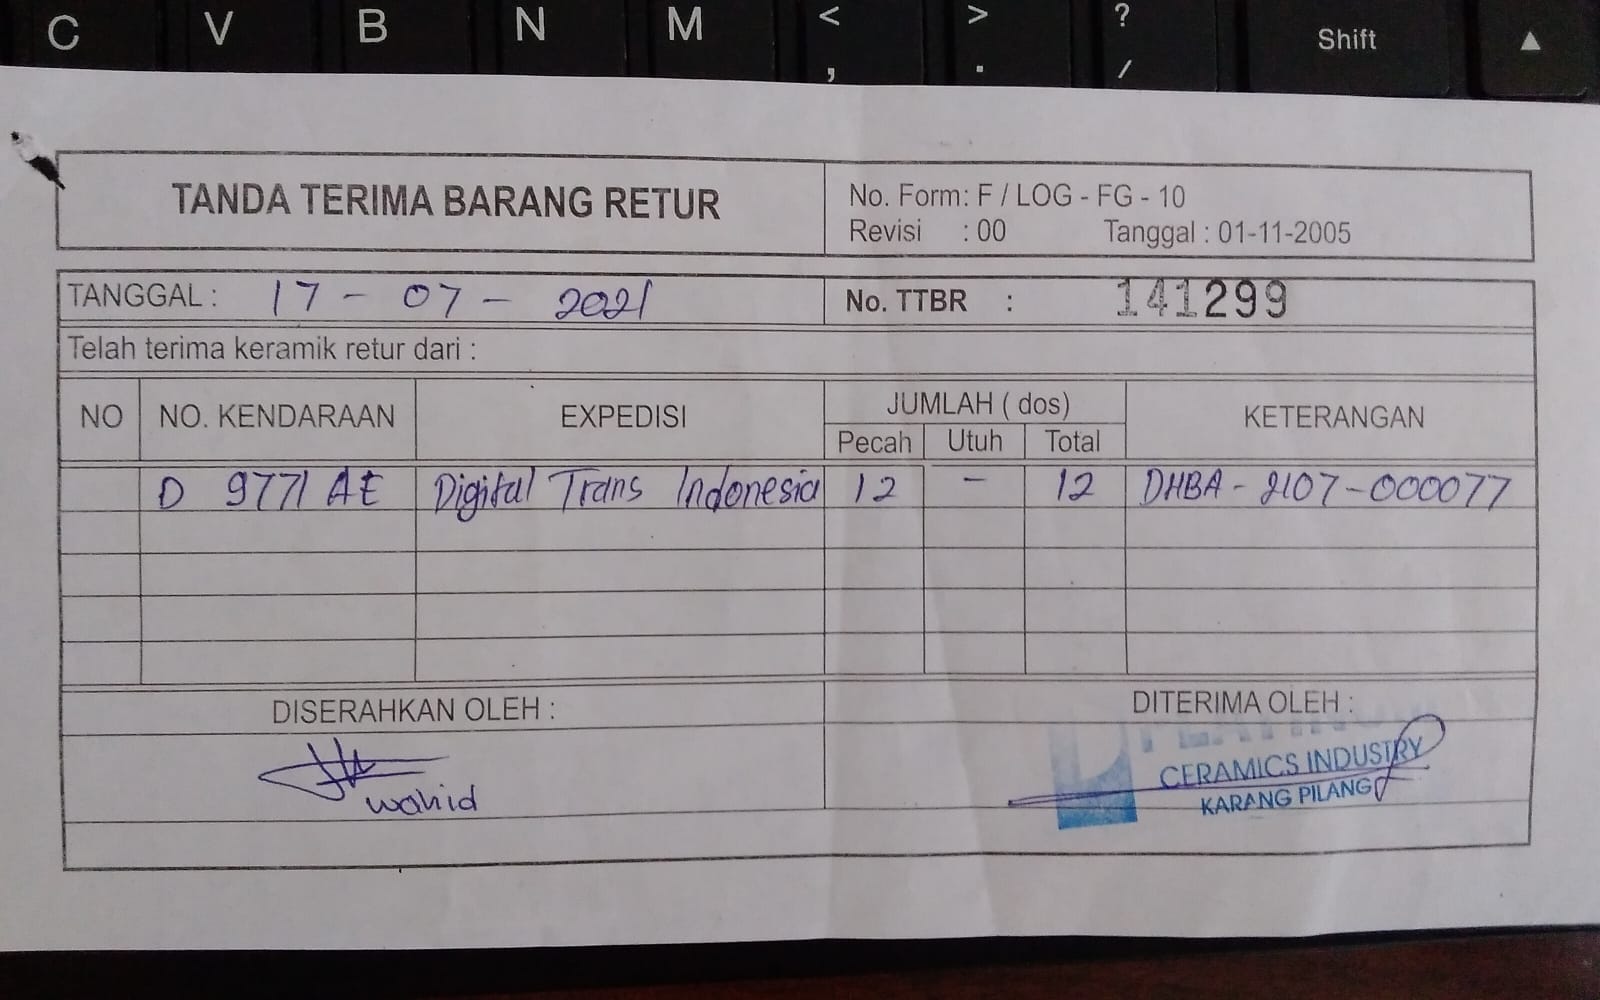 C V B N M < , > . ? / Shift ▲
TANDA TERIMA BARANG RETUR
No. Form: F / LOG - FG - 10
Revisi : 00 Tanggal : 01-11-2005
TANGGAL : 17 - 07 - 2021
No. TTBR : 141299
Telah terima keramik retur dari :
NO NO. KENDARAAN EXPEDISI JUMLAH ( dos) KETERANGAN
Pecah Utuh Total
D 9771 AE Digital Trans Indonesia 12 - 12 DHBA - 2107 - 000077
DISERAHKAN OLEH : DITERIMA OLEH :
wahid
CERAMICS INDUSTRY
KARANG PILANG